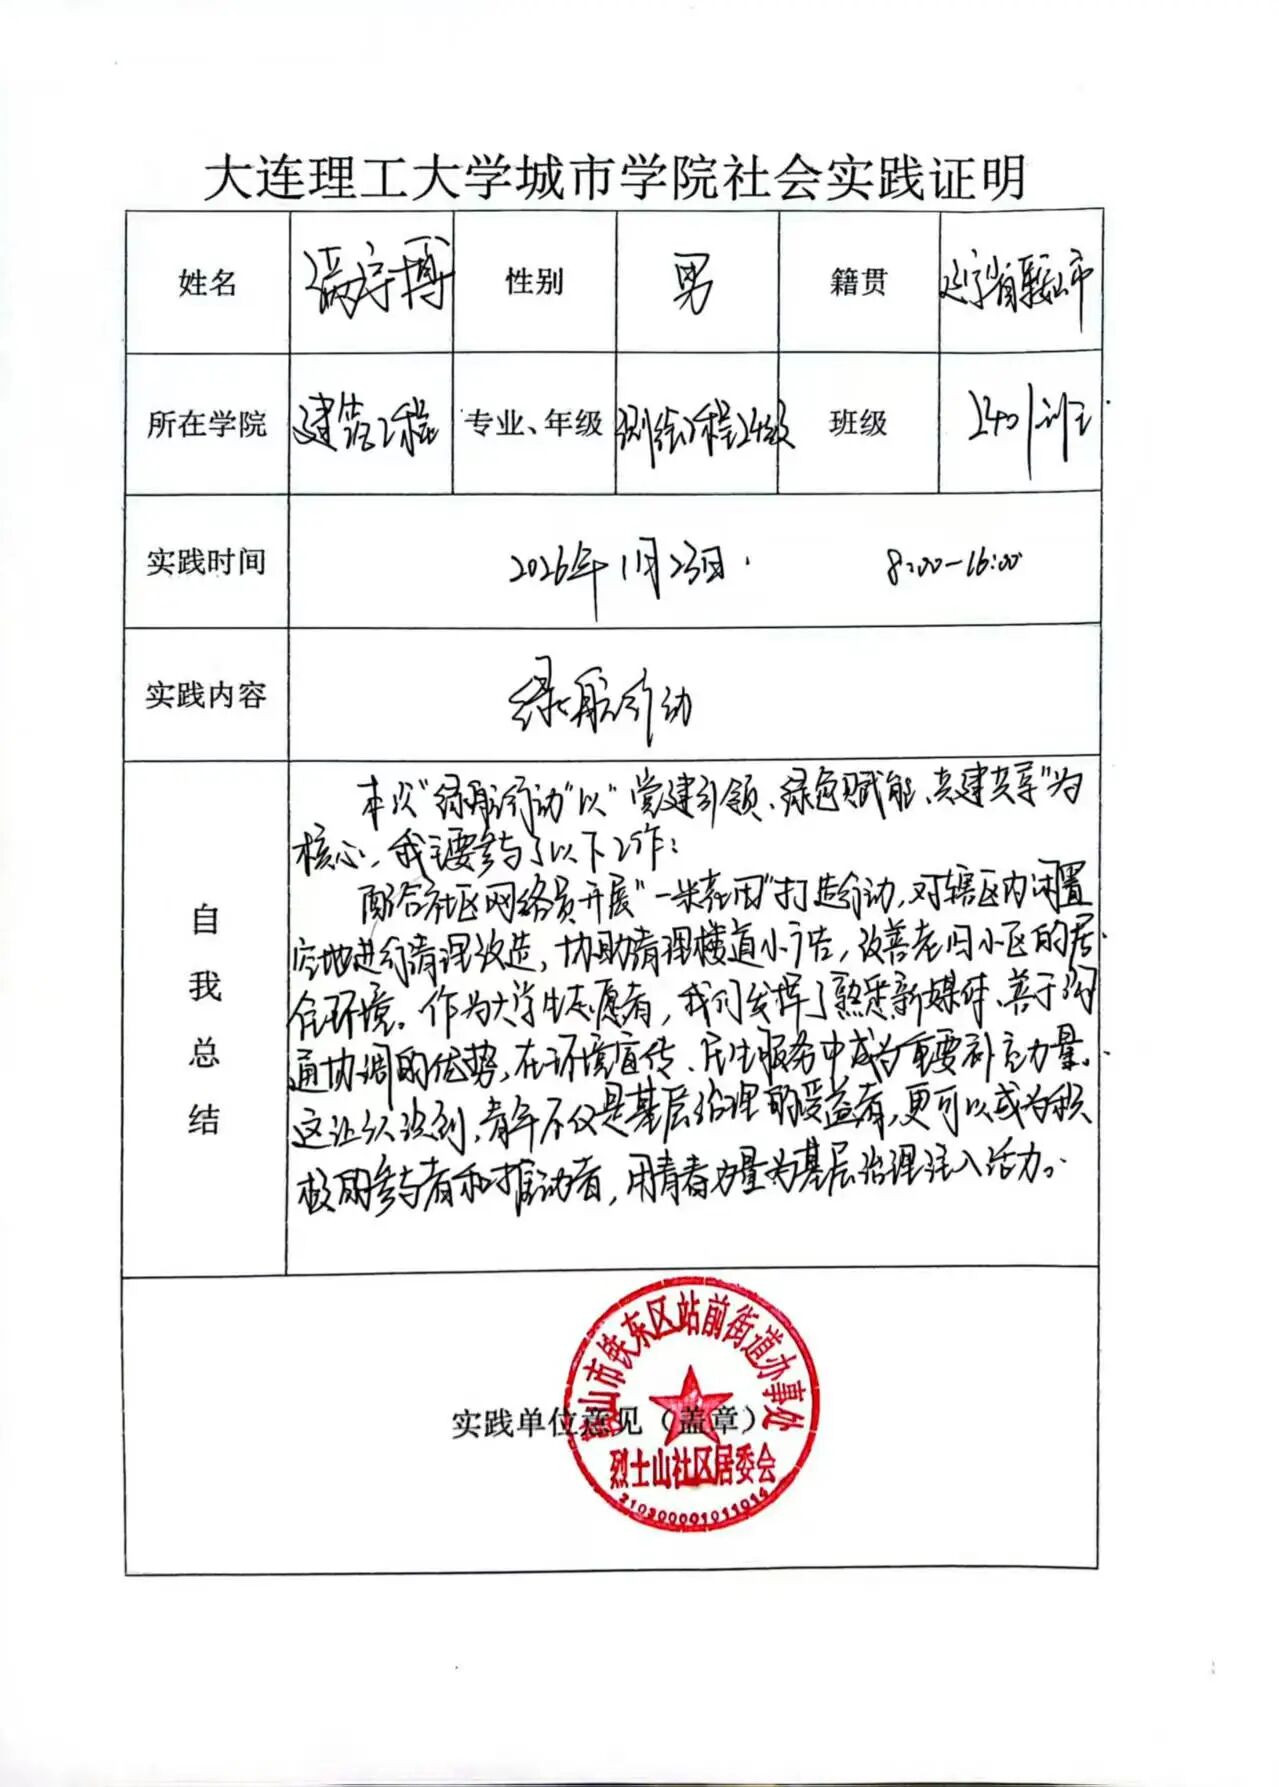 大连理工大学城市学院社会实践证明
姓名 宇博 性别 男 籍贯 辽宁省鞍山市
所在学院 建筑工程 专业、年级 测绘工程24级 班级 2401班
实践时间 2026年1月23日. 8:00-16:00
实践内容 绿航行动
自我总结
本次“绿航行动”以“党建引领、绿色赋能、共建共享”为
核心，我主要参与了以下工作：
配合社区网络员开展“一米花园”打造行动，对辖区内闲置
空地进行清理改造，协助清理楼道小广告，改善老旧小区的居
住环境。作为大学生志愿者，我们发挥了熟悉新媒体、善于沟
通协调的优势，在环境宣传、民生服务中成为重要补充力量。
这让认识到，青年不仅是基层治理的受益者，更可以成为积
极的参与者和推动者，用青春力量为基层治理注入活力。
实践单位意见（盖章）
鞍山市铁东区站前街道办事处
烈士山社区居委会
210300001011014